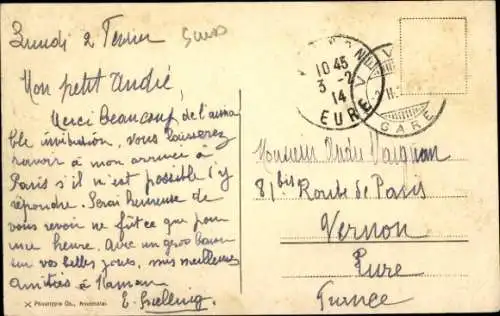 Lundi 2 Février
Mon petit André
Merci beaucoup de l'aima
ble invitation, vous laisserez
savoir à mon arrivée à
Paris s'il m'est possible d'y
répondre. Serai heureuse de
vous revoir ne fût ce que pour
une heure. Avec un gros baiser
sur vos belles joues, mes meilleures
amitiés à Maman
E.
X Phototypie Co., Neuchâtel
10 45
3 -2
14
EURE
GARE
Monsieur André
81 bis Route de Paris
Vernon
Eure
France